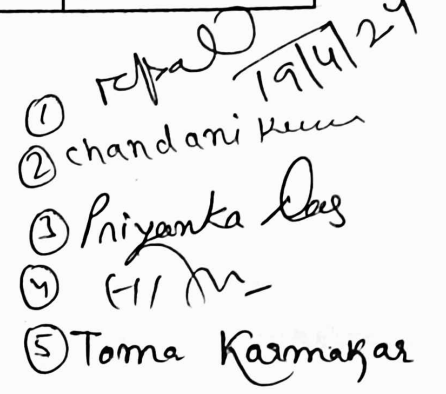 ① 19/4/24
② Chandani
③ Priyanka Das
④
⑤ Toma Karmakar